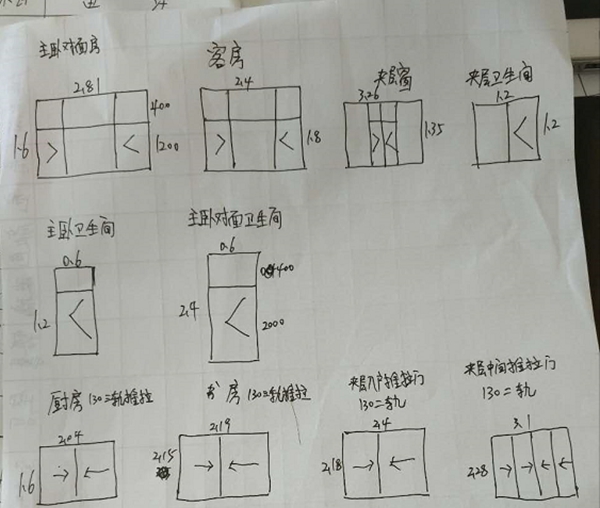 主卧对面房
2.81
400
1.6
1200
客房
2.4
1.8
夹层窗
3.26
1.35
夹层卫生间
1.2
1.2
主卧卫生间
0.6
1.2
主卧对面卫生间
0.6
400
2.4
2000
厨房 130三轨推拉
2.04
1.6
书房 130三轨推拉
2.19
2.15
夹层入户推拉门
130二轨
2.4
2.18
夹层中间推拉门
130二轨
3.1
2.28